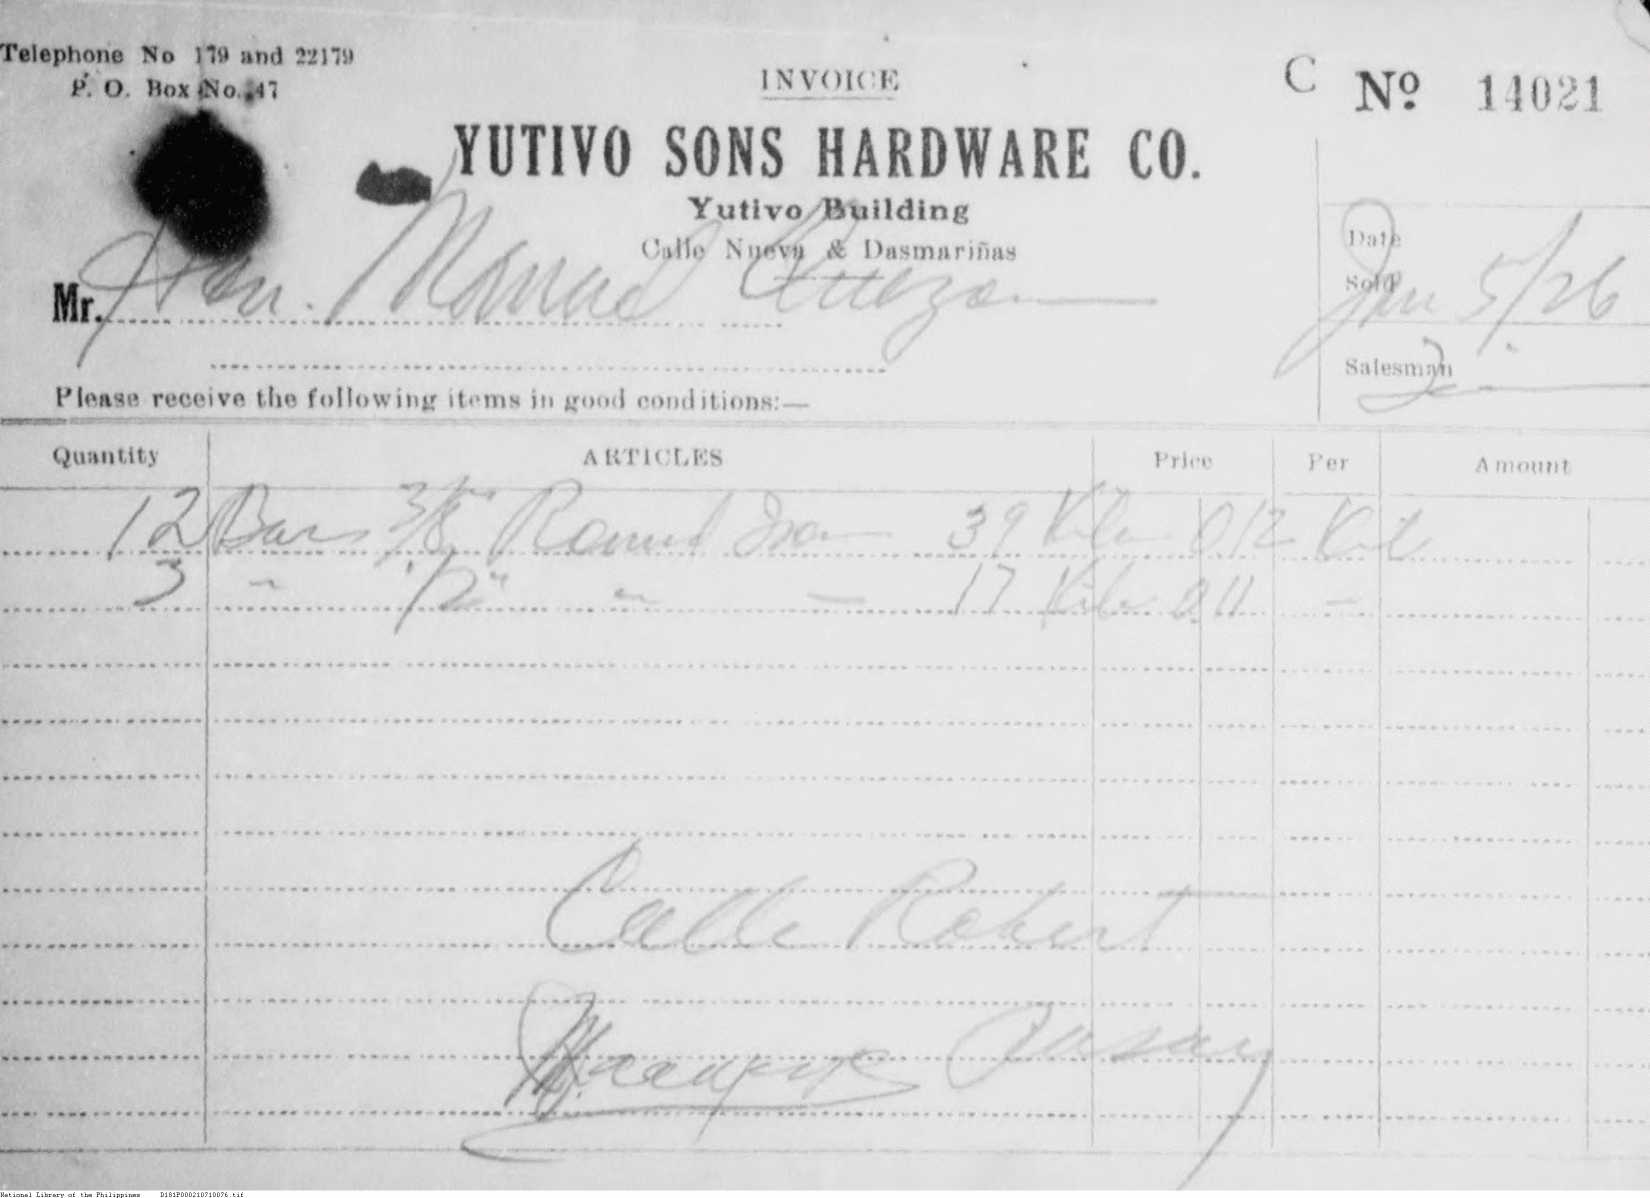 Telephone No 179 and 22179
P. O. Box No. 47
INVOICE
C No 14021
YUTIVO SONS HARDWARE CO.
Yutivo Building
Calle Nueva & Dasmariñas
Mr. Hon. Manuel Quezon
Date Sold Jan 5/26
Salesman
Please receive the following items in good conditions:—
Quantity ARTICLES Price Per Amount
12 Bars 3/8" Round Iron 39 Kilo 0 12 Kilo
3 " 1/2" " — 17 Kilo 0 11 —
Calle Robert
Pasay
National Library of the Philippines D181P000210710076.tif